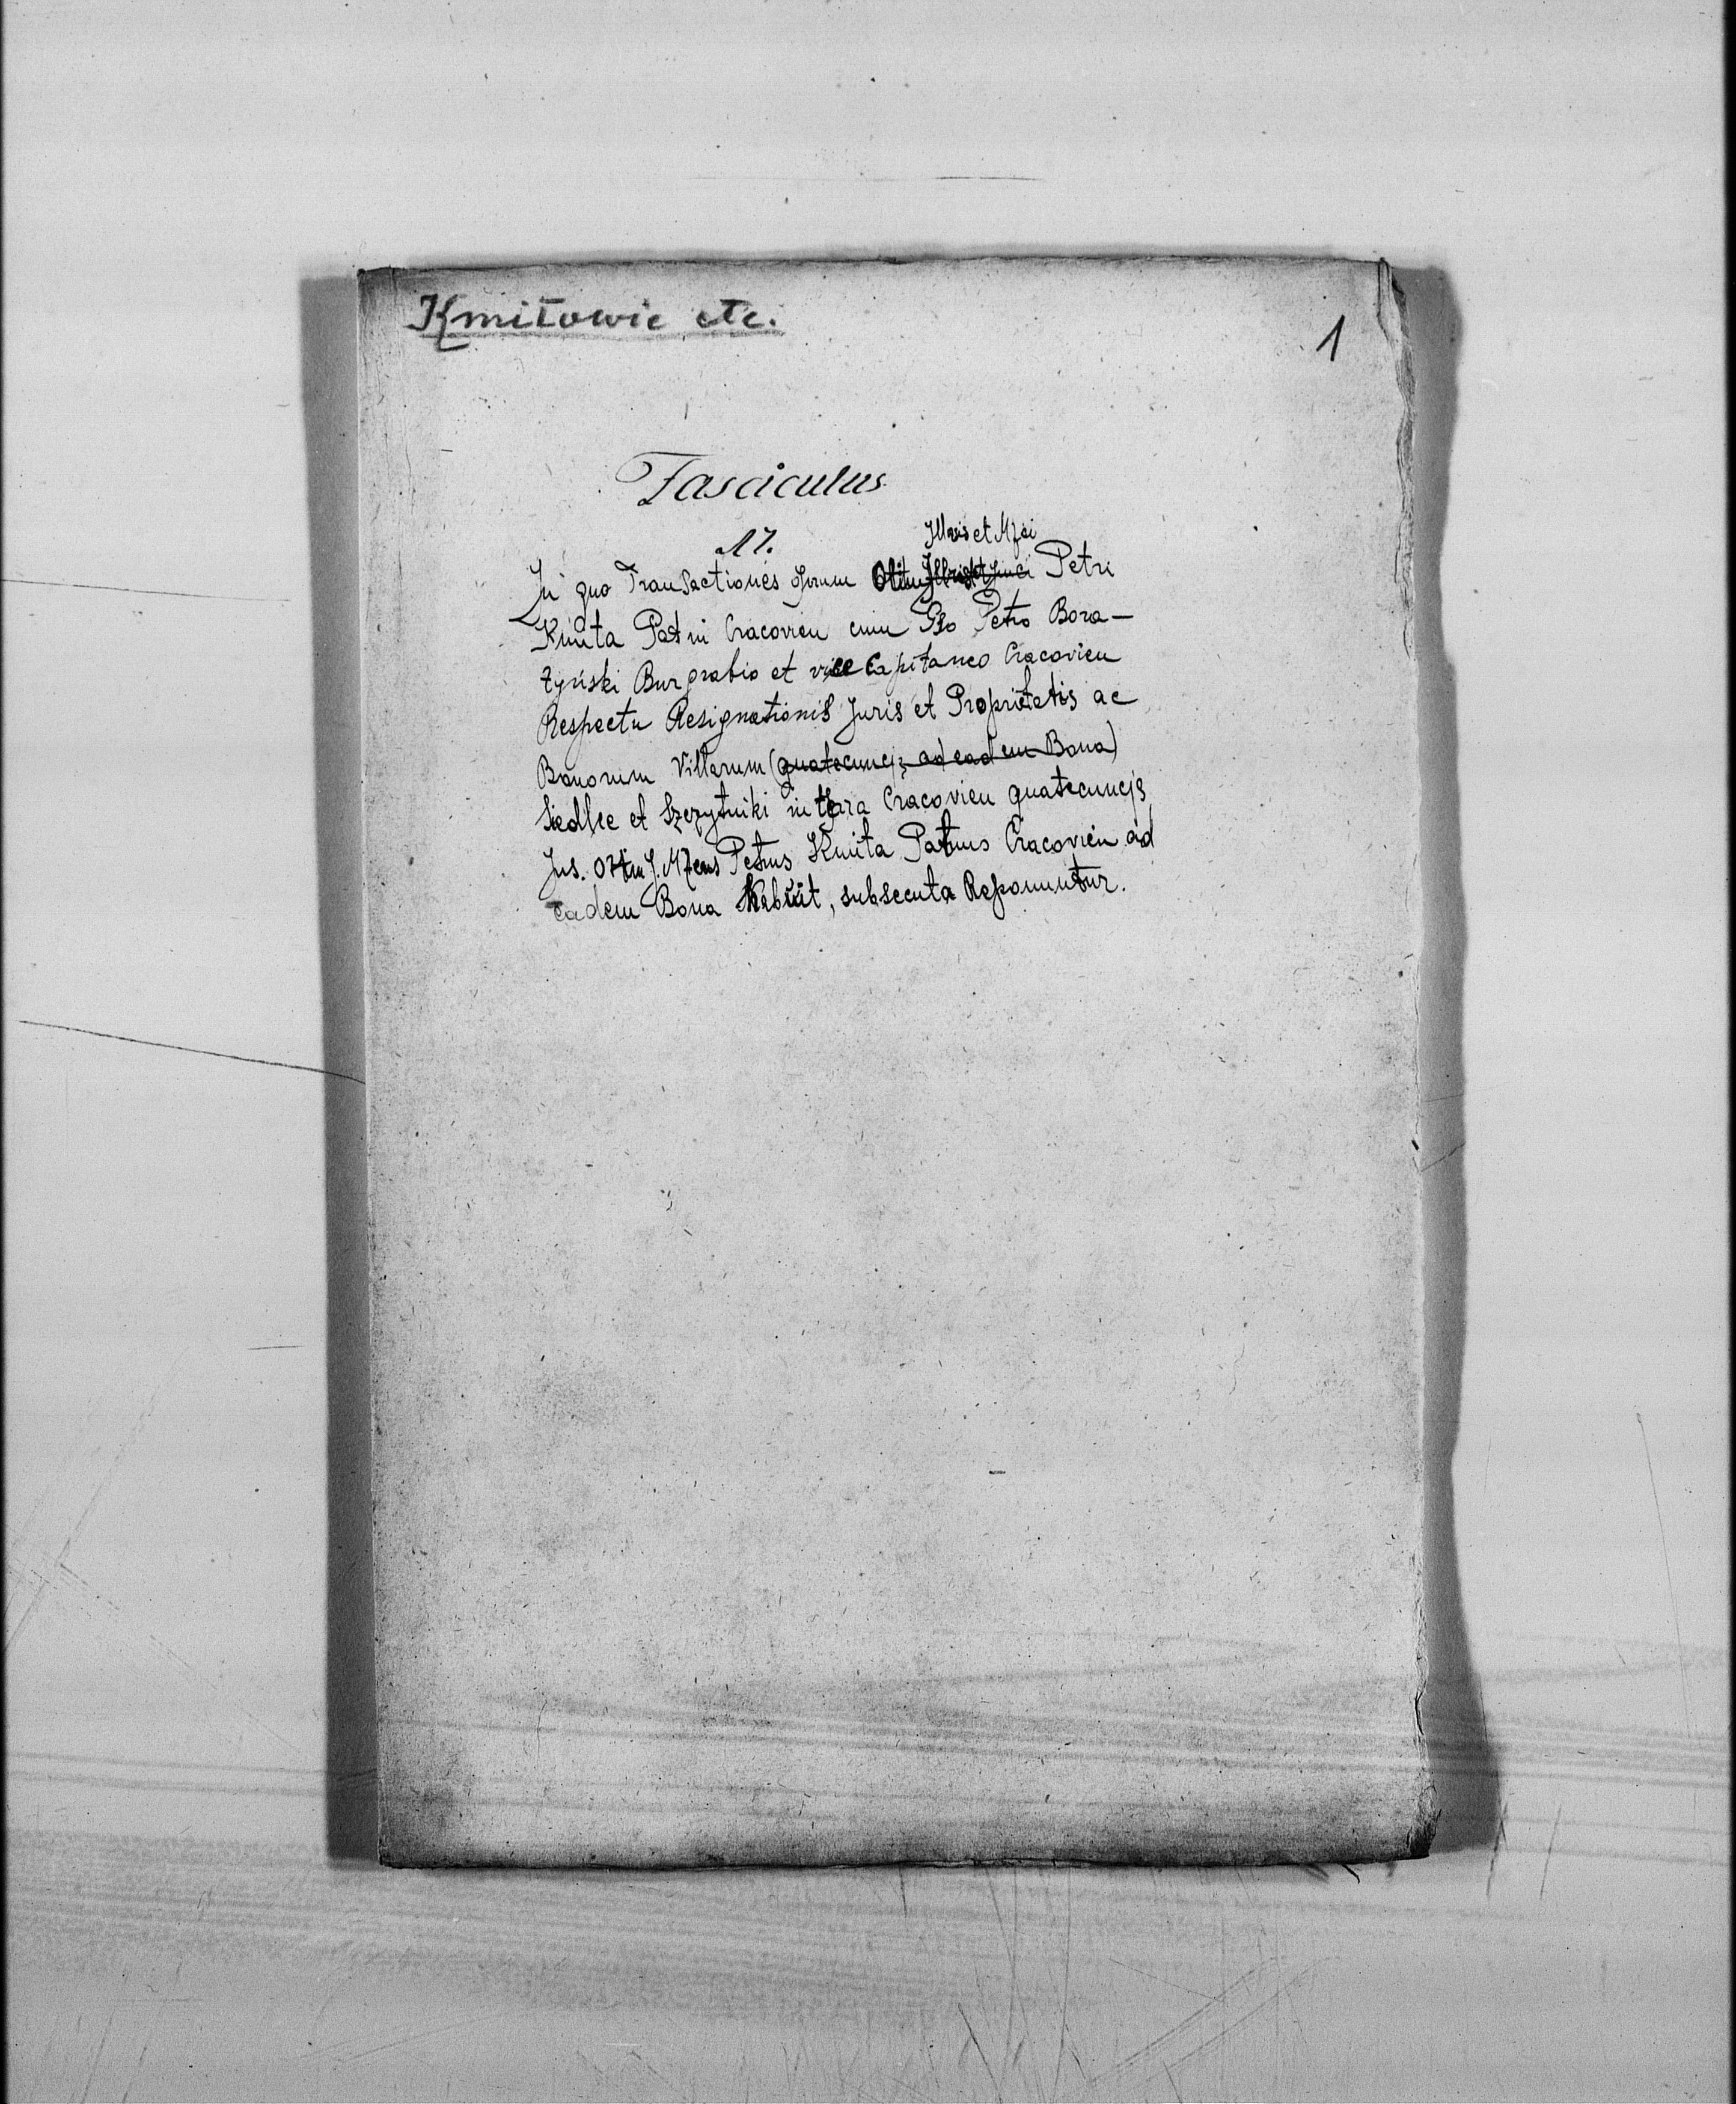 Kmitowie etc.
1
Fasciculus
17.
Illris et Mfci
In quo Transactiones Petri
Kmita Patni Cracovien cum Gso Petro Bora-
tyński Burgrabio et vice Capitaneo Cracovien
Respectu Resignationis Juris et Proprietatis ac
Bonorum Villarum (quatecuncq; ad eadem Bona)
Siedlce et Szczytniki in tera Cracovien quatecuncqs
Jus. Petrus Kmita Patnus Cracovien ad
eadem Bona Habuit, subsecuta Reponuntur.